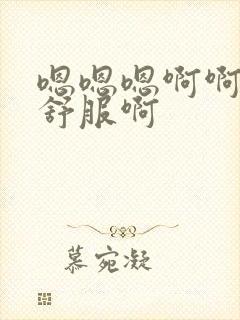 嗯嗯嗯啊啊
舒服啊
慕宛凝